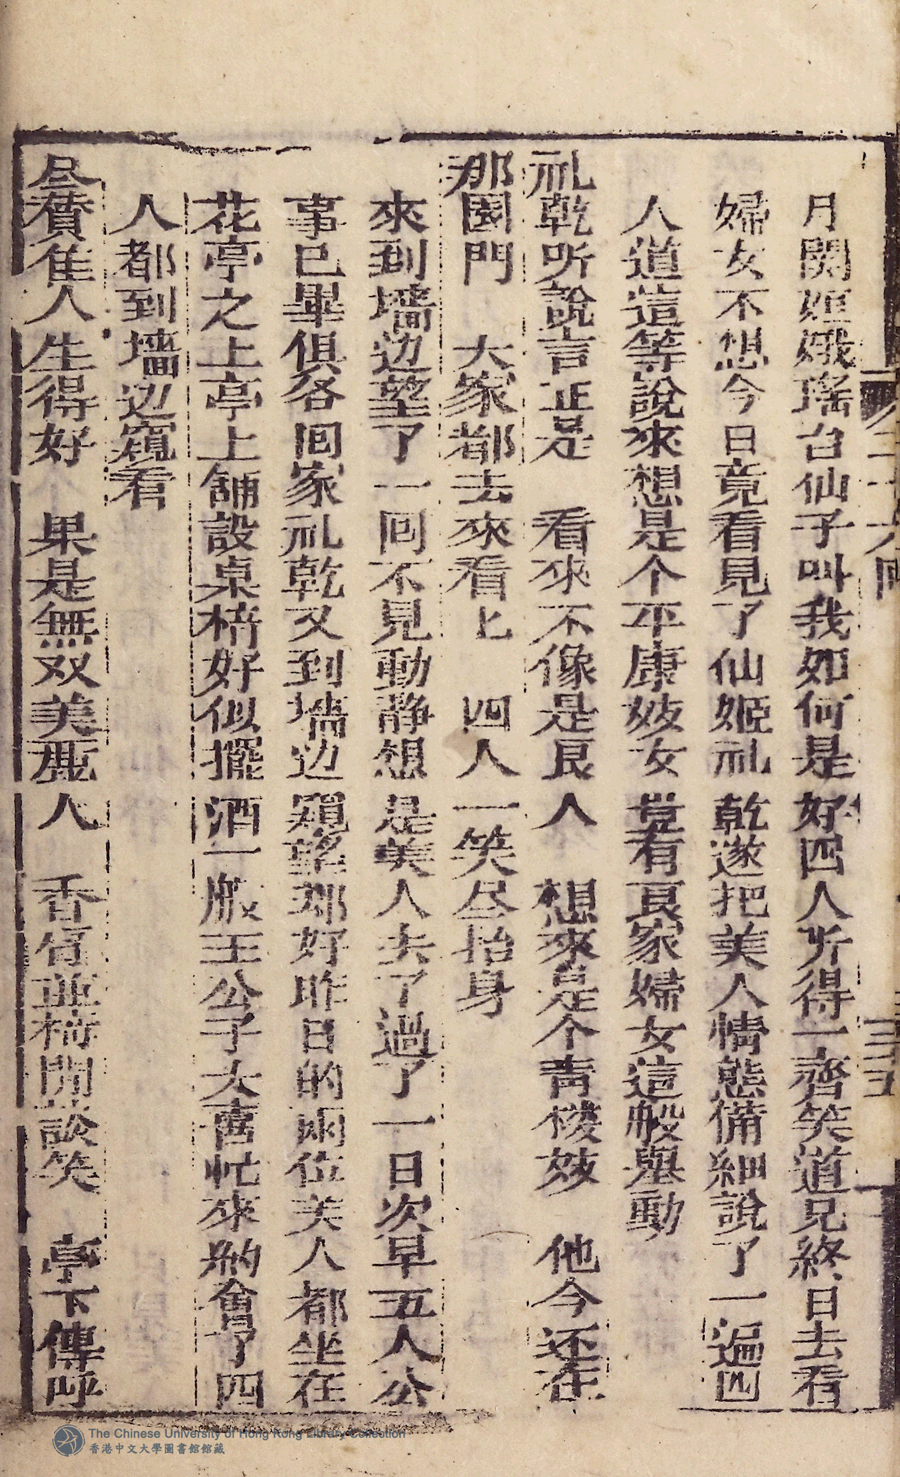 月閔姮娥瑤台仙子叫我如何是好四人听得一齊笑道兄終日去看
婦女不想今日竟看見了仙姬礼乾遂把美人情態俻細說了一遍四
人道這等說來想是个平康妓女豈有良家婦女這般舉動
礼乾听說言正是　看來不像是良人　想來是个青楼妓　他今还在
那園門　大家都去來看匕　四人一笑尽抬身
來到墻边望了一囘不見動静想是美人去了過了一日次早五人公
事已畢俱各囘家礼乾又到墻边窺望那好昨日的兩位美人都坐在
花亭之上亭上舖設桌椅好似擺酒一般王公子大喜忙來納會了四
人都到墻边窺看
尽賛佳人生得好　果是無双美麗人　香肩並椅閒談笑　亭下傳呼
二十八囘
三十五
The Chinese University of Hong Kong Library Collection
香港中文大學圖書館館藏